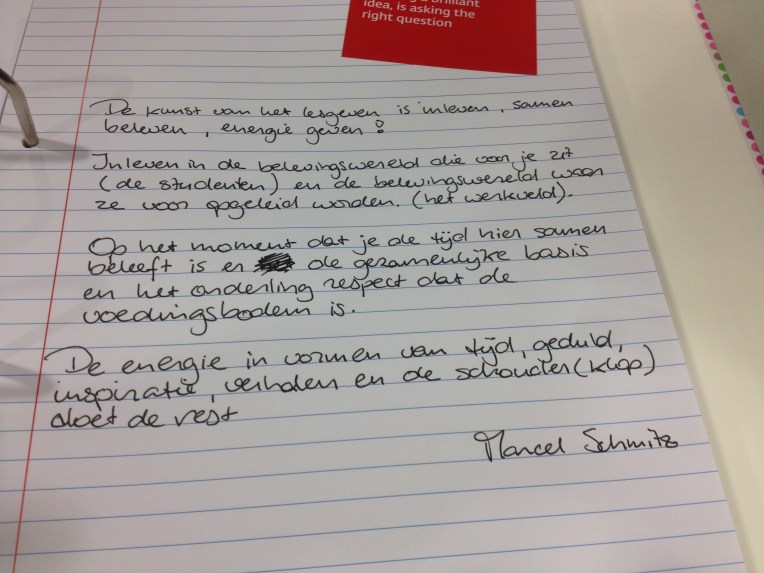 idea, is asking the
right question
De kunst van het lesgeven is inleven, samen
beleven, energie geven!
Inleven in de belevingswereld die voor je zit
(de studenten) en de belevingswereld waar
ze voor opgeleid worden. (het werkveld).
Op het moment dat je de tijd hier samen
beleeft is er de gezamenlijke basis
en het onderling respect dat de
voedingsbodem is.
De energie in vormen van tijd, geduld,
inspiratie, verhalen en de schouder(klop)
doet de rest
Marcel Schmitz